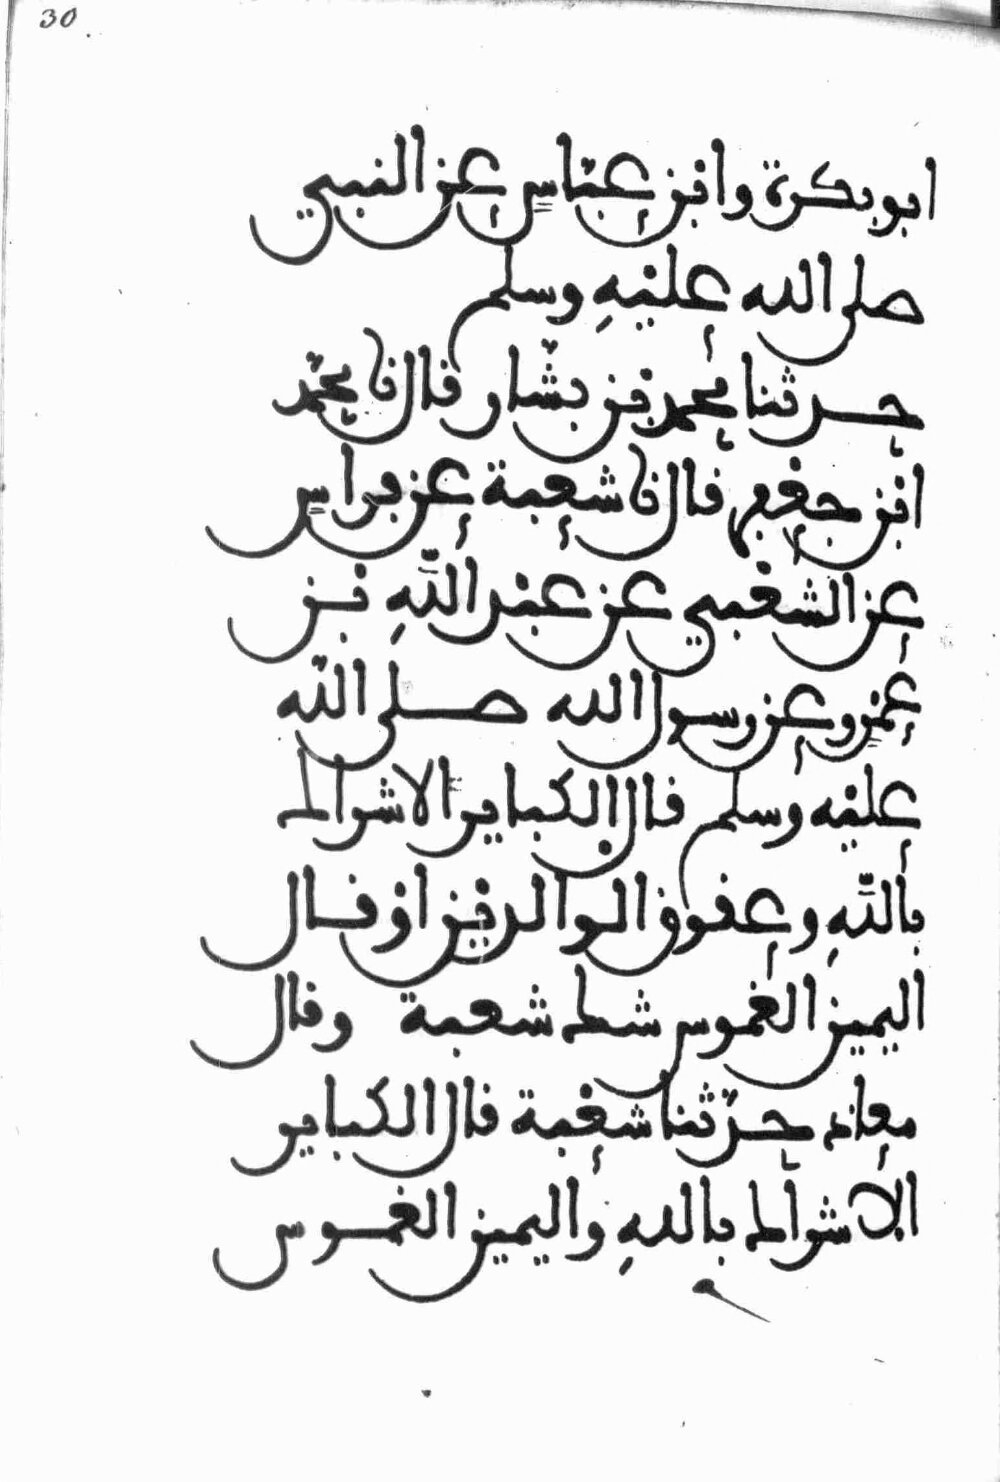 30
ابو بكرة وابن عباس عن النبي
صلى الله عليه وسلم
حدثنا محمد بن بشار قال نا محمد
ابن جعفر قال نا شعبة عن فراس
عن الشعبي عن عبد الله بن
عمرو عن رسول الله صلى الله
عليه وسلم قال الكباير الاشراك
بالله وعقوق الوالدين او قال
اليمين الغموس شك شعبة وقال
معاذ حدثنا شعبة قال الكباير
الاشراك بالله واليمين الغموس